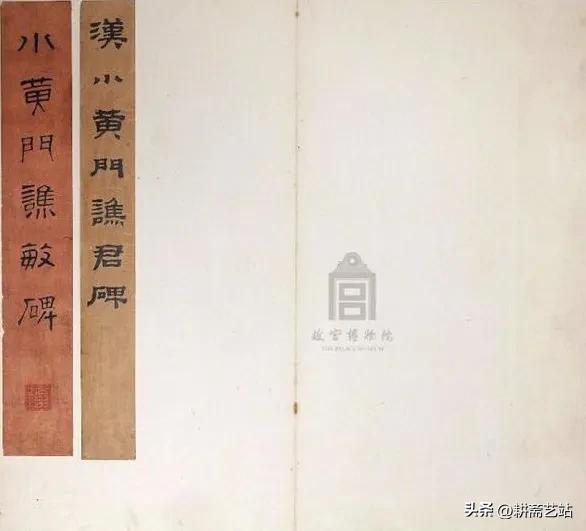 漢小黄門譙君碑
小黄門譙敏碑
故宫博物院
THE PALACE MUSEUM
头条 @耕斋艺站